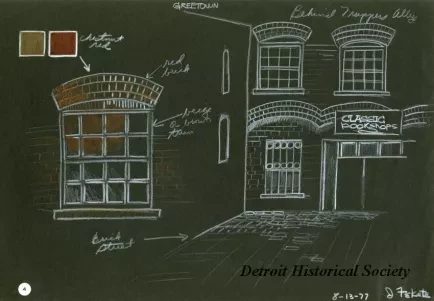 GREETOWN
Behind Trappers Alley
chestnut
red
red
brick
beige
or brown
CLASSIC
BOOKSHOPS
Brick
Street
Detroit Historical Society
4
8-13-77